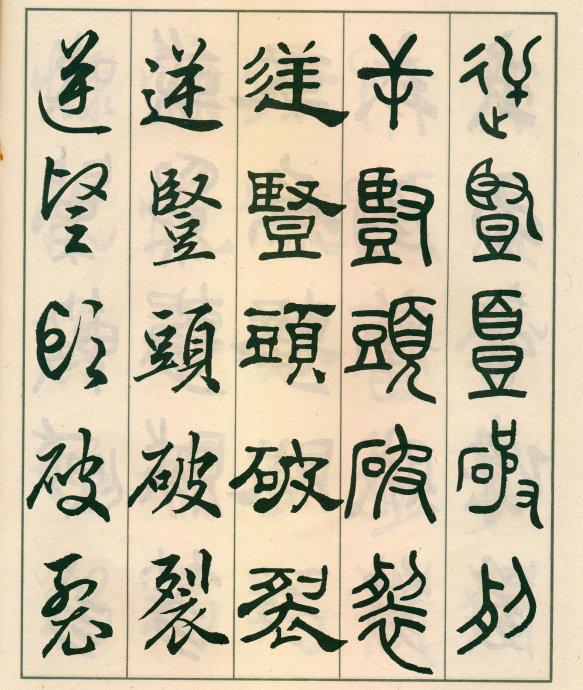 逆豎頭破裂
逆豎頭破裂
逆豎頭破裂
逆豎頭破裂
逆豎頭破裂